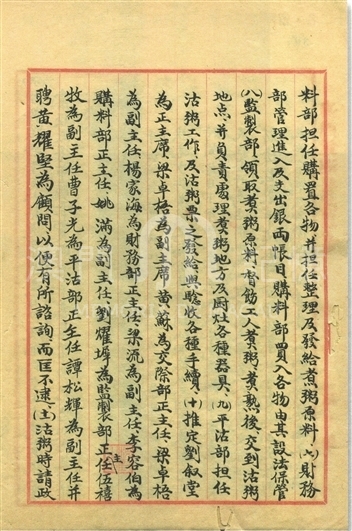 料部担任購置各物并担任整理及發給煮粥原料、(六)財務
部管理進入及支出銀両帳目購料部買入各物由其設法保管
(八)監製部、領取煮粥原料、督飭工人煮粥、煮熟後交到沽粥
地点、并負責處理煮粥地方及厨灶各種器具、(九)平沽部担任
沽粥工作及沽粥票之發給與驗收各種手續(十)推定劉叙堂
為正主席、梁卓梧為副主席黄蘇為交際部正主任、梁卓梧
為副主任、楊家海為財務部正主任、梁流為副主任、李容伯為
購料部正主任、姚滿為副主任、劉耀墀為監製部正主任伍禧
牧為副主任曹子光為平沽部正主任譚松輝為副主任并
聘黄耀堅為顧問以便有所諮詢、而匡不逮、(十一)沽粥時請政